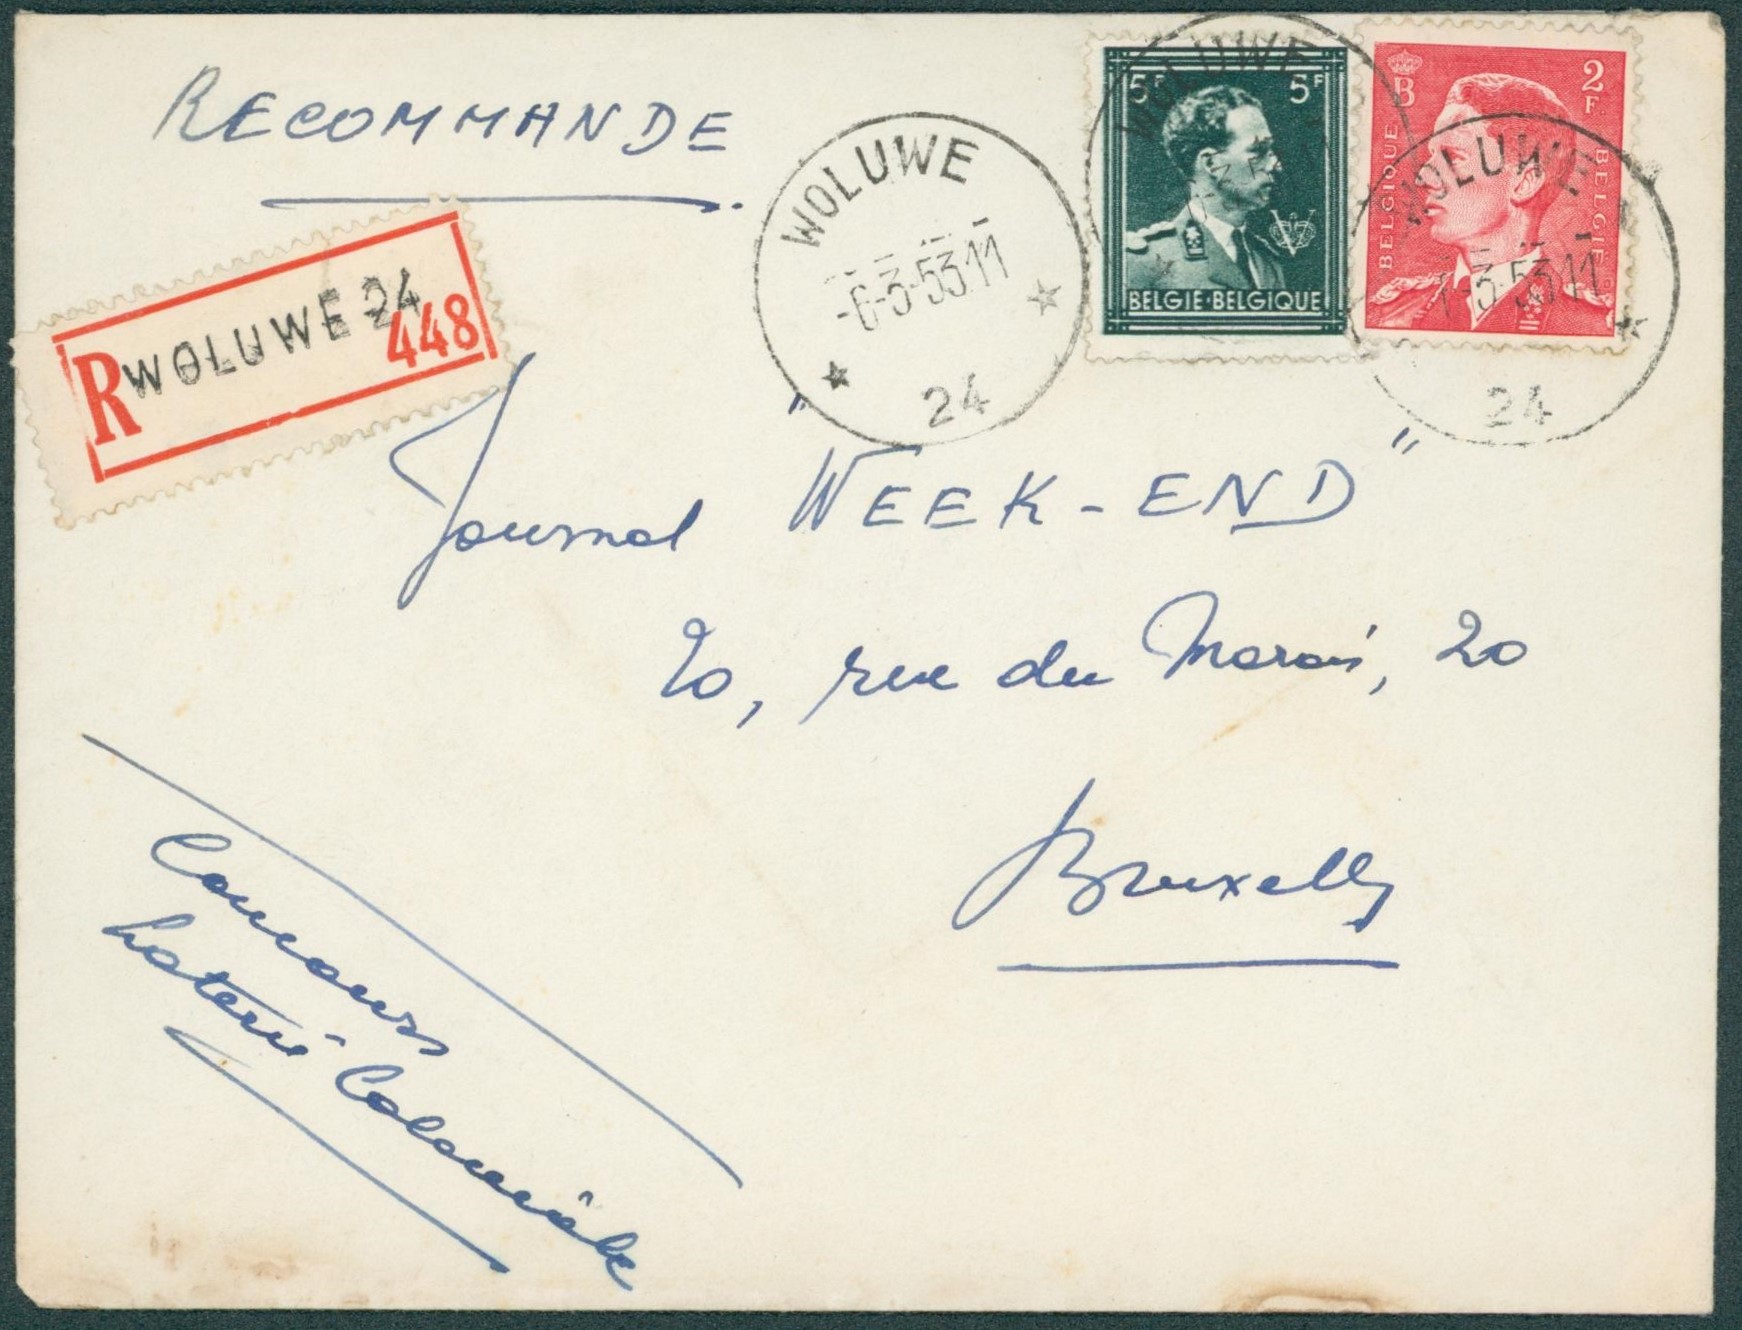 RECOMMANDE
R WOLUWE 24
448
WOLUWE
-6-3-53 11
24
WOLUWE
5F 5F
BELGIE·BELGIQUE
B 2F
BELGIQUE BELGIE
WOLUWE
-3-53 11
24
Journal "WEEK-END"
20, rue du Marais, 20
Bruxelles
Concours
Loterie Coloniale